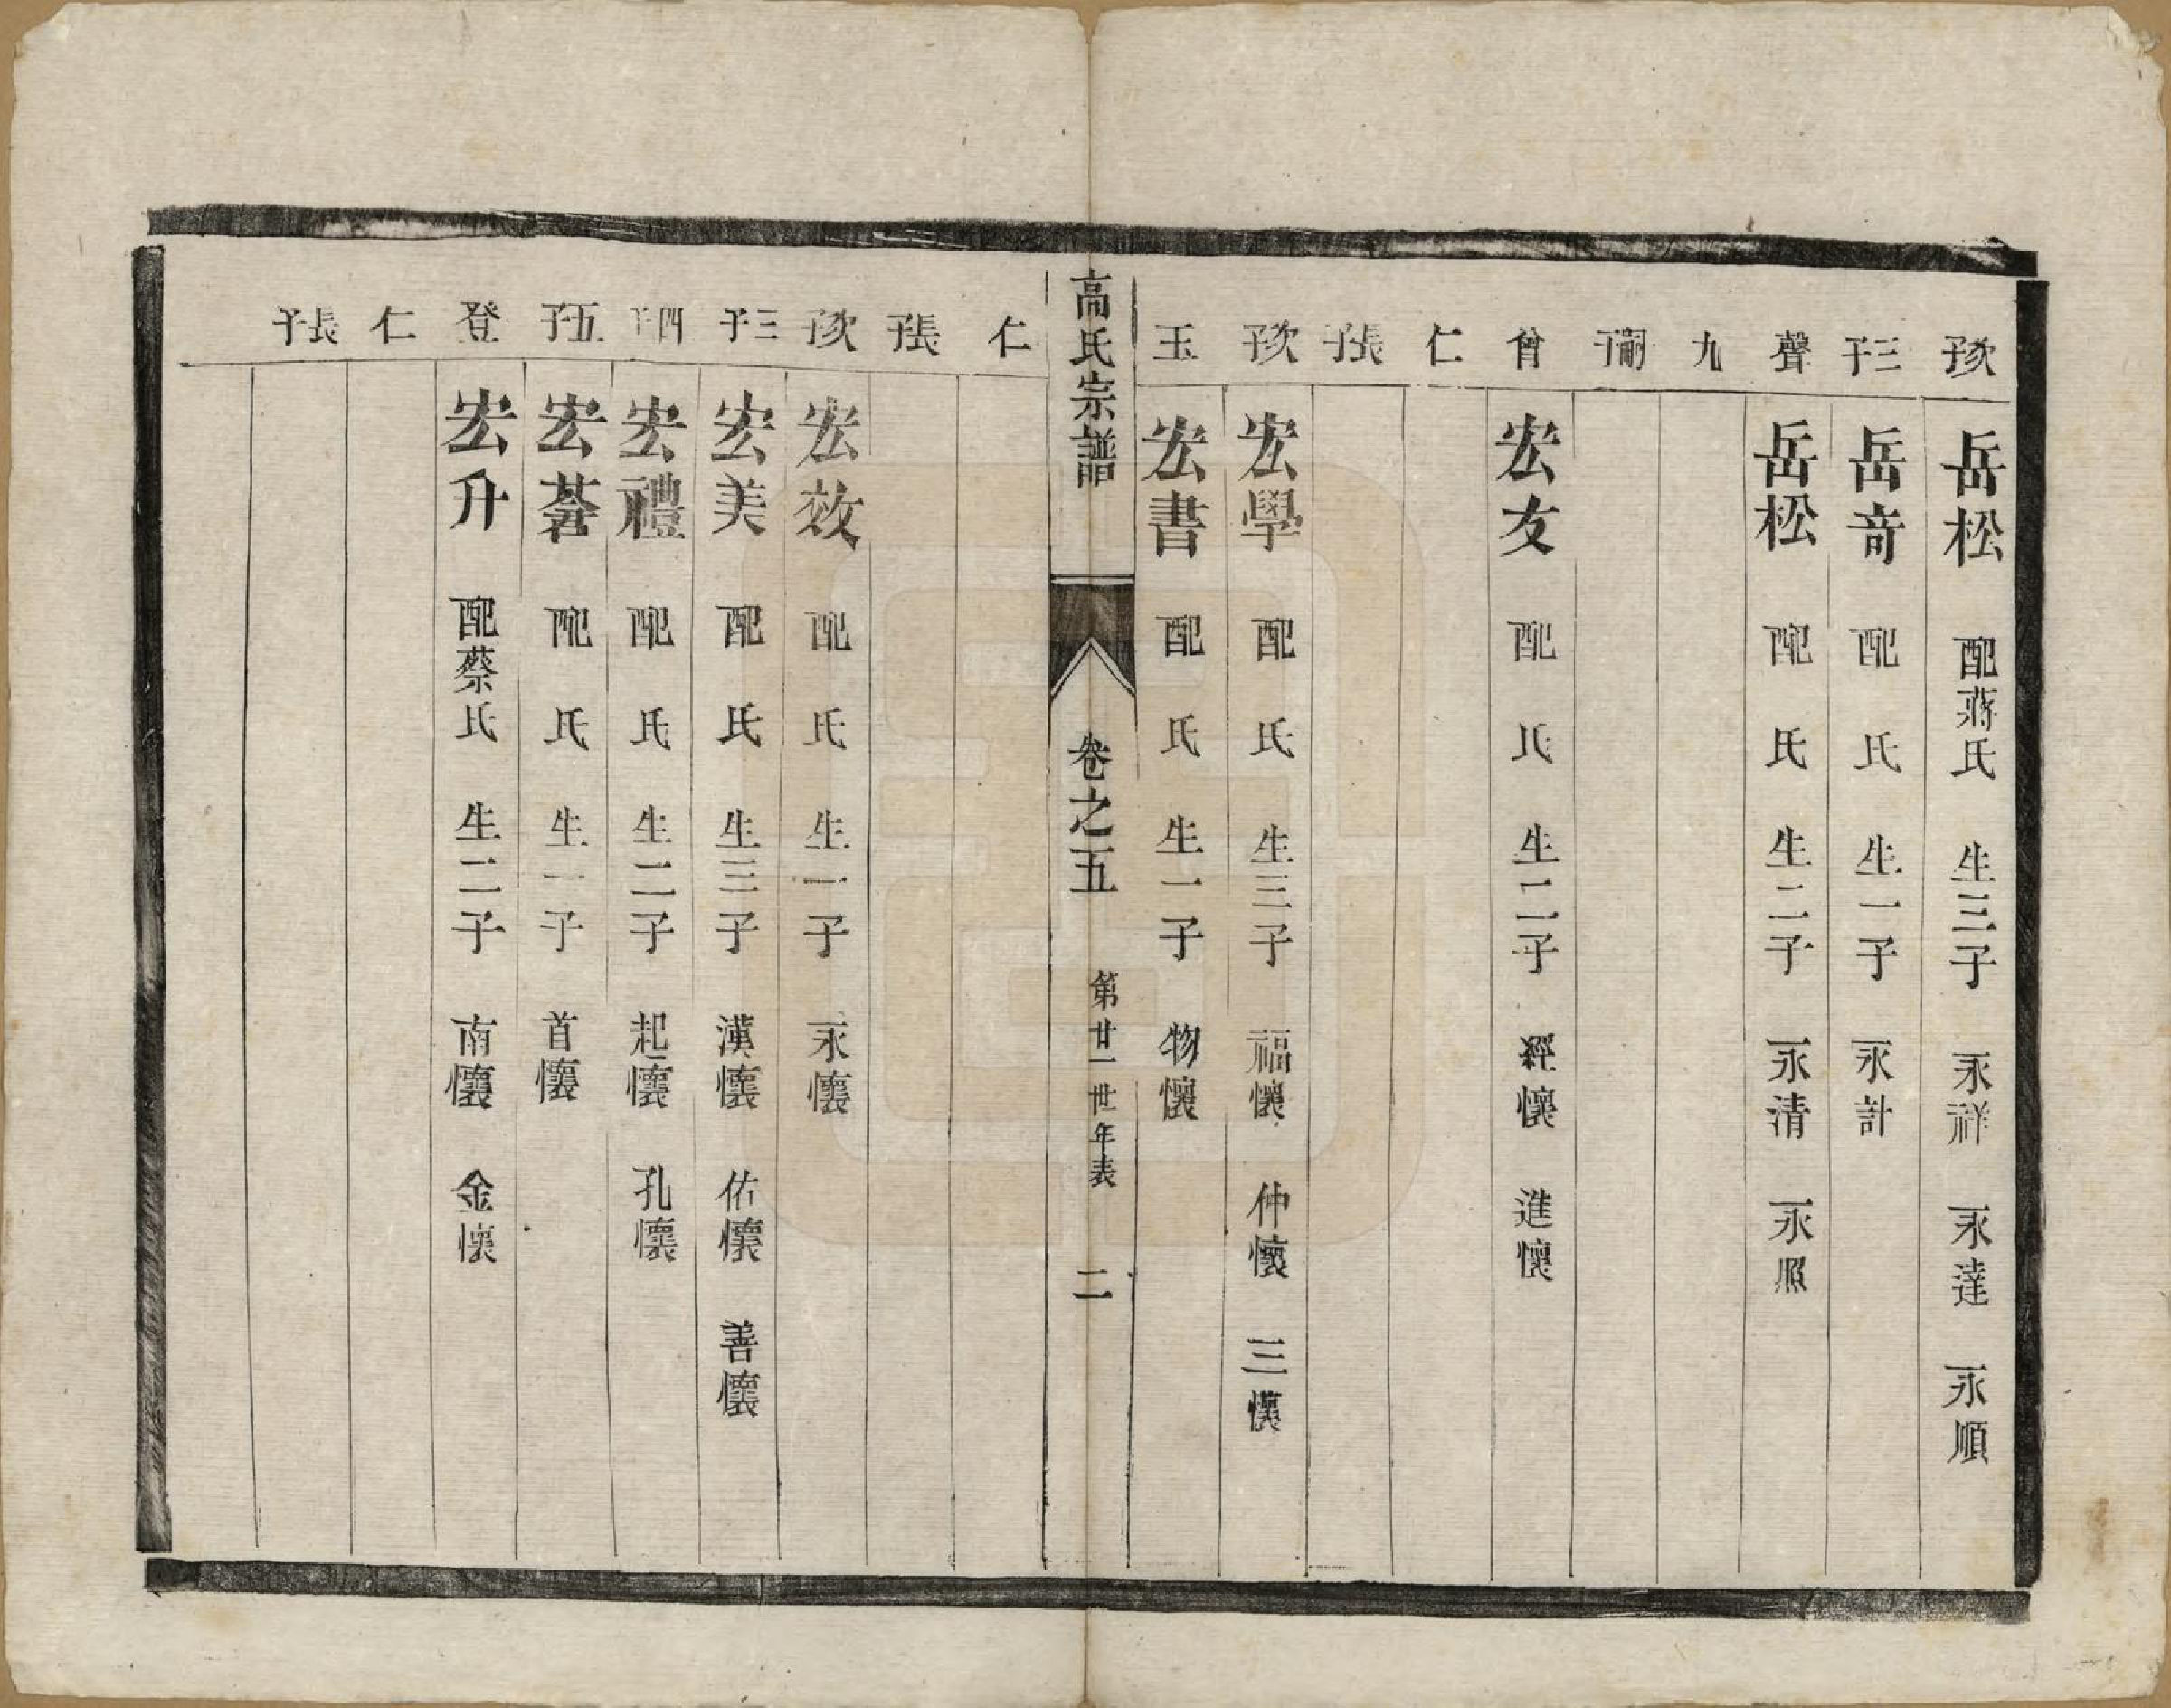 次子 岳松 配蔣氏 生三子 永祥 永達 永順
三子 岳竒 配 氏 生一子 永計
聲 岳松 配 氏 生二子 永清 永照
九
嗣子
曾 宏友 配 氏 生二子 經懷 進懷
仁
長子
次子 宏學 配 氏 生三子 福懷 仲懷 三懷
玉 宏書 配 氏 生一子 物懷
高氏宗譜 卷之五 第廿一世年表 二
仁
長子
次子 宏效 配 氏 生一子 永懷
三子 宏美 配 氏 生三子 漢懷 佑懷 善懷
四子 宏禮 配 氏 生二子 起懷 孔懷
五子 宏 配 氏 生一子 首懷
登 宏升 配蔡氏 生二子 南懷 金懷
仁
長子